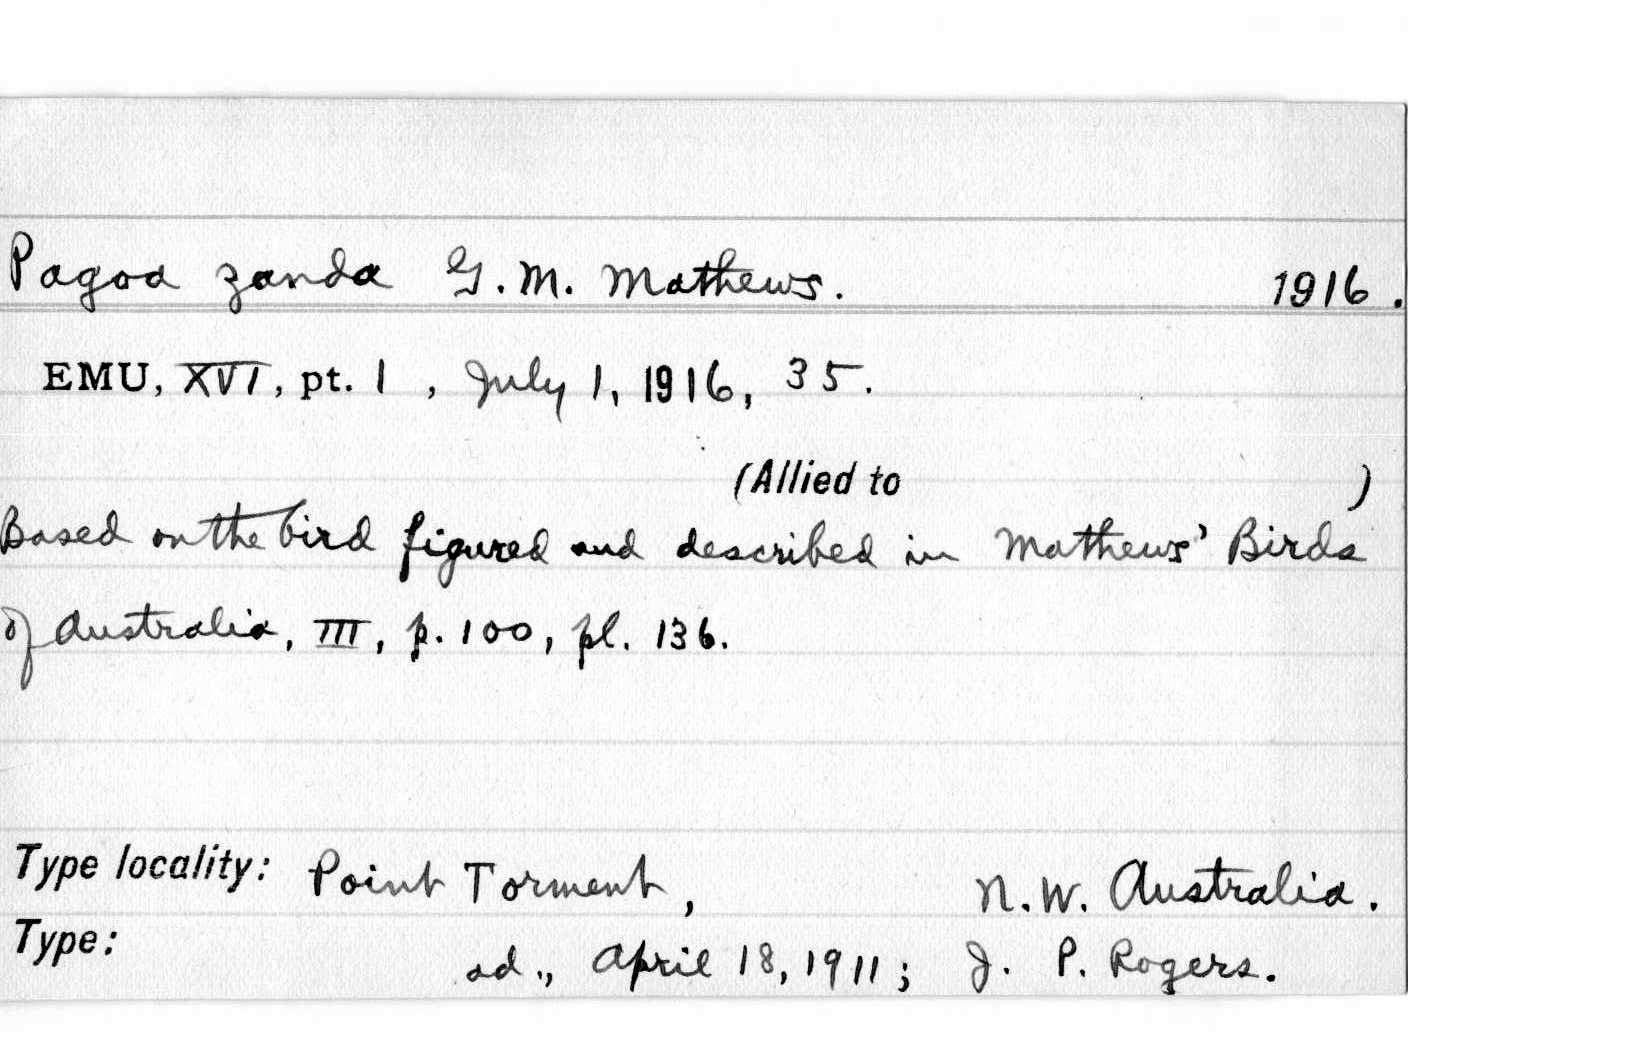 Pagoa zanda G. M. Mathews. 1916.
EMU, XVI, pt. 1, July 1, 1916, 35.
(Allied to )
Based on the bird figured and described in Mathews' Birds
of Australia, III, p. 100, pl. 136.
Type locality: Point Torment, N. W. Australia.
Type: ad., April 18, 1911; J. P. Rogers.